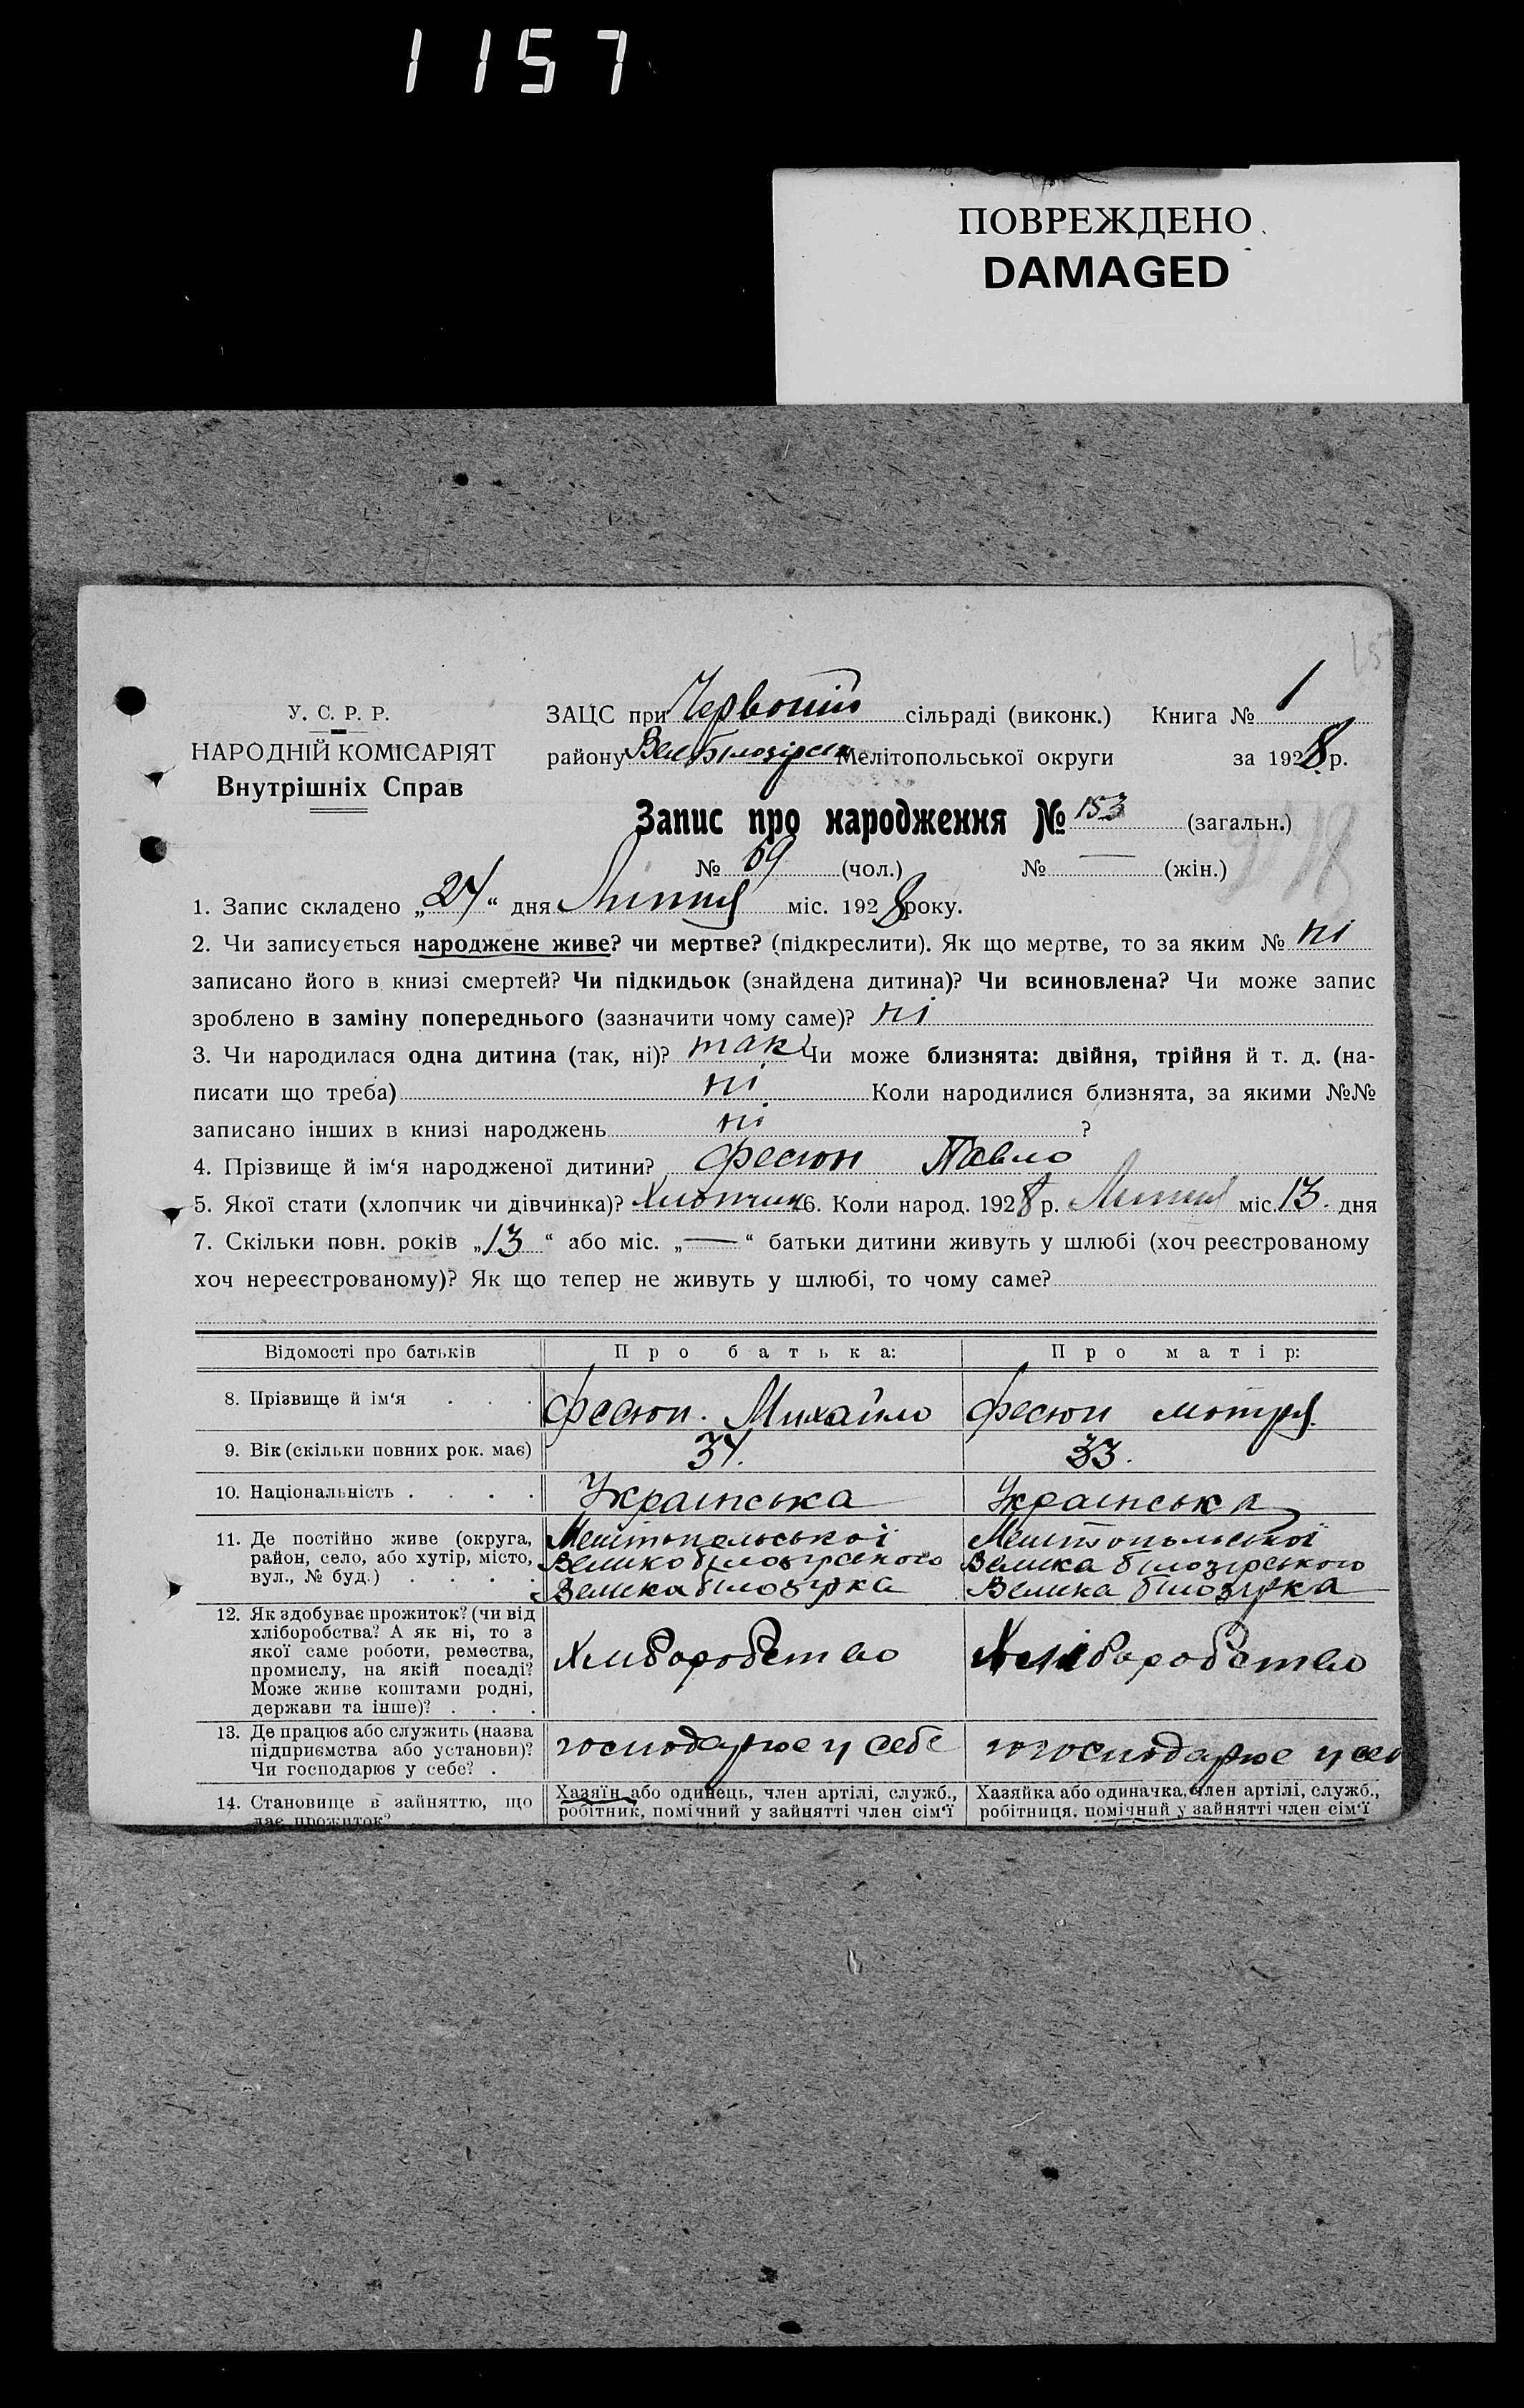 1157
ПОВРЕЖДЕНО
DAMAGED
У. С. Р. Р.
НАРОДНІЙ КОМІСАРІЯТ
Внутрішніх Справ
ЗАЦС при Червоній сільраді (виконк.) Книга № 1
району Вел Білозірськ Мелітопольської округи за 1928 р.
Запис про народження № 153 (загальн.)
№ 69 (чол.) № — (жін.)
1. Запис складено „24“ дня Липня міс. 1928 року.
2. Чи записується народжене живе? чи мертве? (підкреслити). Як що мертве, то за яким № ні
записано його в книзі смертей? Чи підкидьок (знайдена дитина)? Чи всиновлена? Чи може запис
зроблено в заміну попереднього (зазначити чому саме)? ні
3. Чи народилася одна дитина (так, ні)? так Чи може близнята: двійня, трійня й т. д. (на-
писати що треба) ні Коли народилися близнята, за якими №№
записано інших в книзі народжень ні ?
4. Прізвище й ім‘я народженої дитини? Фесюн Павло
5. Якої стати (хлопчик чи дівчинка)? Хлопчик 6. Коли народ. 1928 р. Липня міс. 13. дня
7. Скільки повн. років „13“ або міс. „—“ батьки дитини живуть у шлюбі (хоч реєстрованому
хоч нереєстрованому)? Як що тепер не живуть у шлюбі, то чому саме?
Відомості про батьків Про батька: Про матір:
8. Прізвище й ім‘я . . . Фесюн. Михайло Фесюн мотря
9. Вік (скільки повних рок. має) 34. 33.
10. Національність . . . . Українська Українська
11. Де постійно живе (округа, Мелітопольської Мелітопольської
район, село, або хутір, місто, Великобілозірського Велика білозірського
вул., № буд.) . . . . Велика білозірка Велика білозірка
12. Як здобуває прожиток? (чи від
хліборобства? А як ні, то з
якої саме роботи, ремества, Хліборобство Хліборобство
промислу, на якій посаді?
Може живе коштами родні,
держави та інше)? . . .
13. Де працює або служить (назва
підприємства або установи)? господарює у себе господарює у себ
Чи господарює у себе? .
14. Становище в зайняттю, що Хазяїн або одинець, член артілі, служб., Хазяйка або одиначка, член артілі, служб.,
дає прожиток? робітник, помічний у зайнятті член сім‘ї робітниця, помічний у зайнятті член сім‘ї